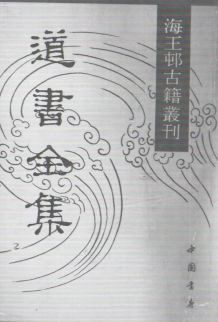 海王邨古籍叢刊
道書全集
中國書店